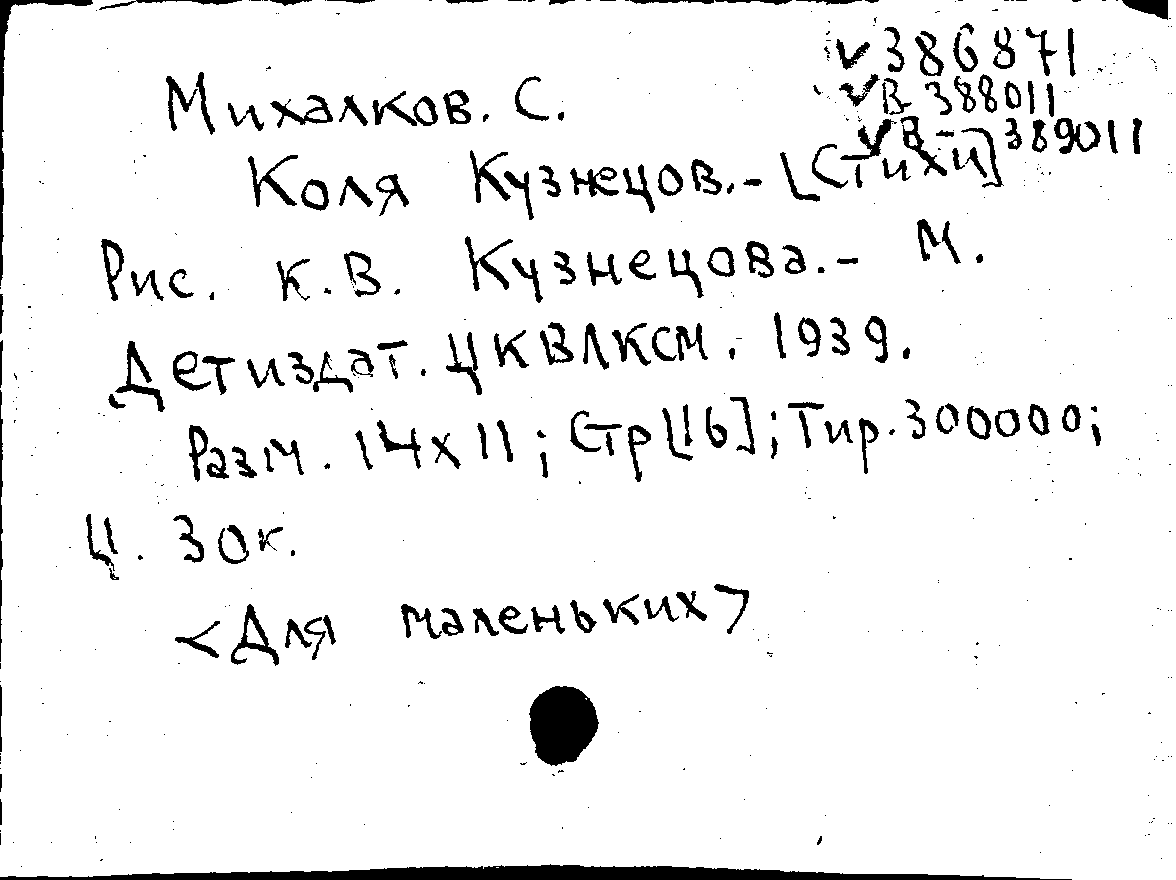 ✓386871
Михалков. С.
✓В 388011
✓В - 389011
Коля Кузнецов.- [Стихи]
Рис. К.В. Кузнецова.- М.
Детиздат. ЦКВЛКСМ. 1939.
Разм. 14х11; Стр[16]; Тир. 300000;
Ц. 30к.
<Для маленьких>